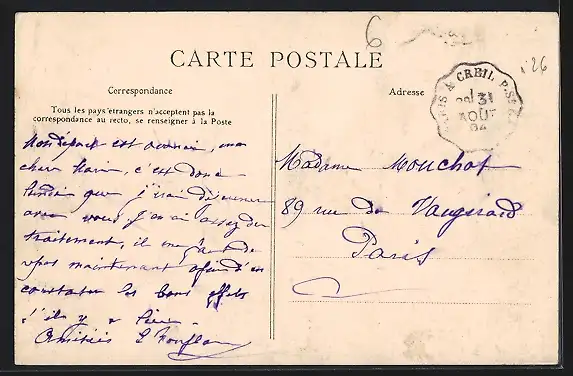 6
CARTE POSTALE
Correspondance
Adresse
Tous les pays étrangers n'acceptent pas la
correspondance au recto, se renseigner à la Poste
A CREIL
31
AOUT
04
126
Mon départ est , mon
cher , c'est donc
que j'irai déjeuner
avec vous j'en ai assez du
traitement, il me faut de
repos maintenant afin d'en
constater les bons effets
s'il y a lieu.
Amitiés
Madame Mouchot
89 rue de Vaugirard
Paris